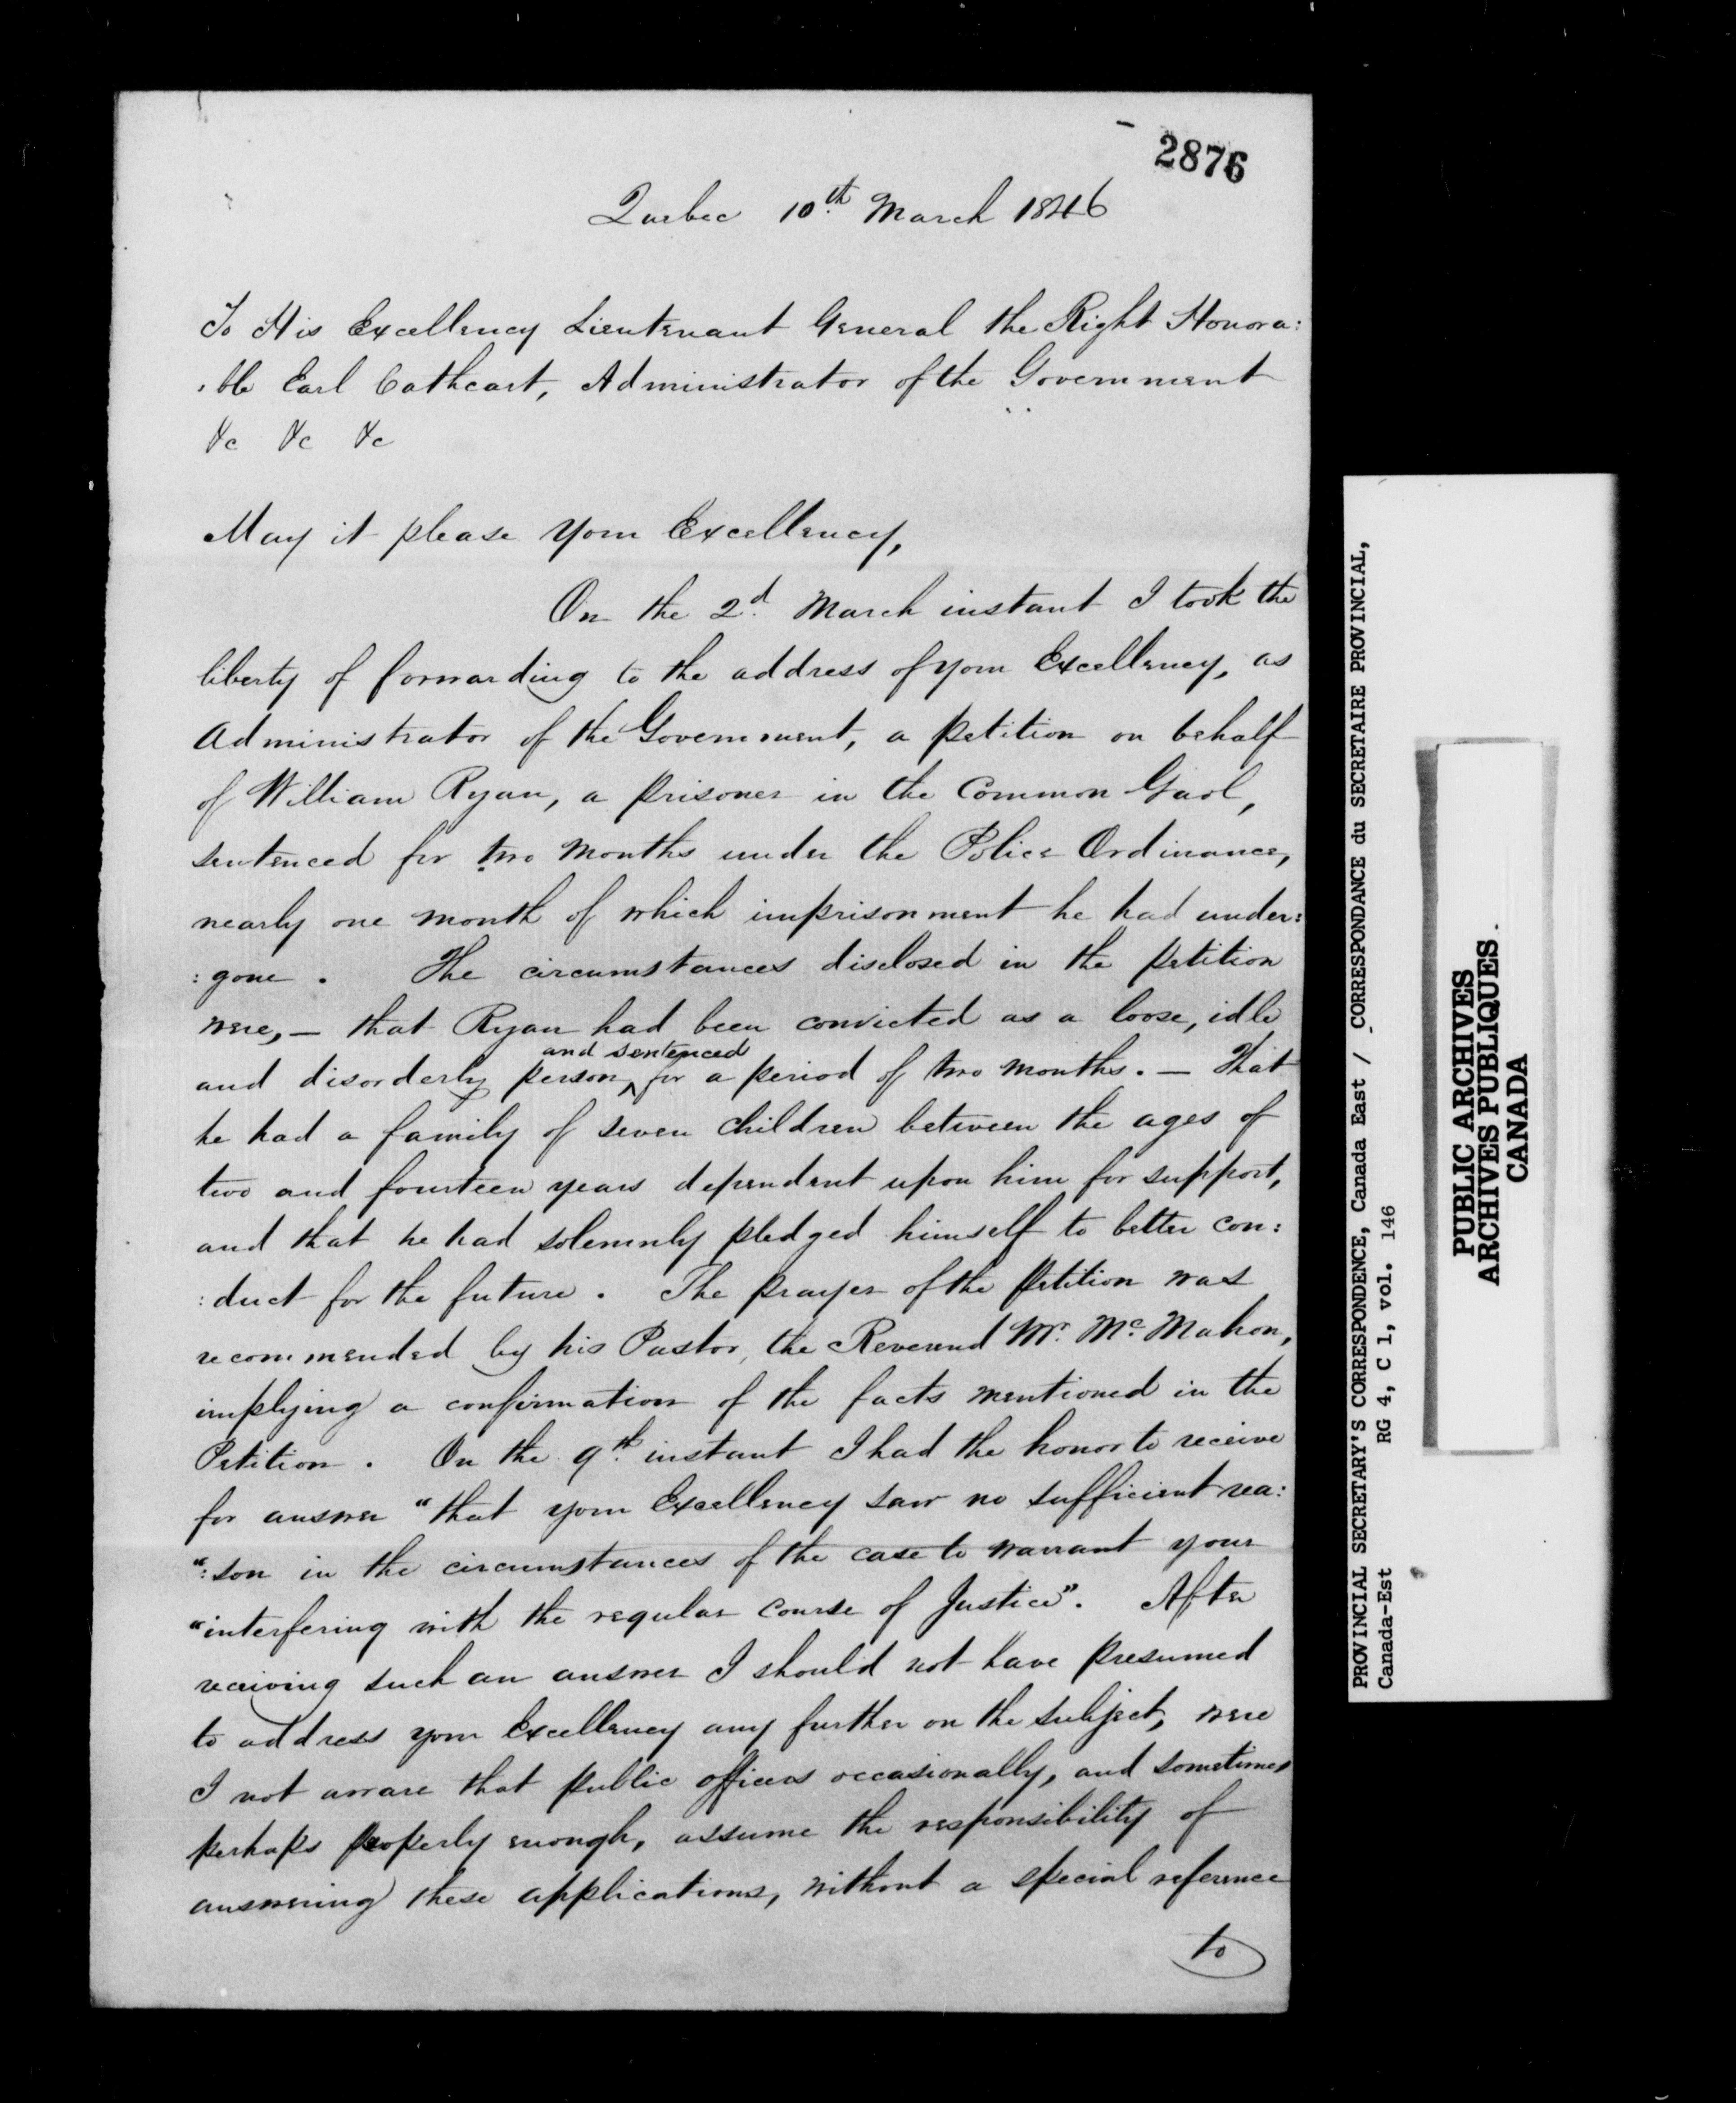 2876
Quebec 10th March 1846
To His Excellency Lieutenant General the Right Honora:
:ble Earl Cathcart, Administrator of the Government
&c &c &c
May it please your Excellency,
On the 2d March instant I took the
liberty of forwarding to the address of your Excellency, as
Administrator of the Government, a petition on behalf
of William Ryan, a prisoner in the Common Gaol,
sentenced for two months under the Police Ordinance,
nearly one month of which imprisonment he had under:
:gone. The circumstances disclosed in the petition
were, — that Ryan had been convicted as a loose, idle
and sentenced
and disorderly person ^ for a period of two months. — That
he had a family of seven children between the ages of
two and fourteen years dependent upon him for support,
and that he had solemnly pledged himself to better con:
:duct for the future. The prayer of the petition was
recommended by his Pastor, the Reverend Mr. McMahon,
implying a confirmation of the facts mentioned in the
Petition. On the 9th instant I had the honor to receive
for answer "that your Excellency saw no sufficient rea:
":son in the circumstances of the case to warrant your
"interfering with the regular course of Justice". After
receiving such an answer I should not have presumed
to address your Excellency any further on the subject, were
I not aware that public officers occasionally, and sometimes
perhaps properly enough, assume the responsibility of
answering these applications, without a special reference
to
PROVINCIAL SECRETARY'S CORRESPONDENCE, Canada East / CORRESPONDANCE du SECRETAIRE PROVINCIAL,
Canada-Est RG 4, C 1, vol. 146
PUBLIC ARCHIVES
ARCHIVES PUBLIQUES
CANADA